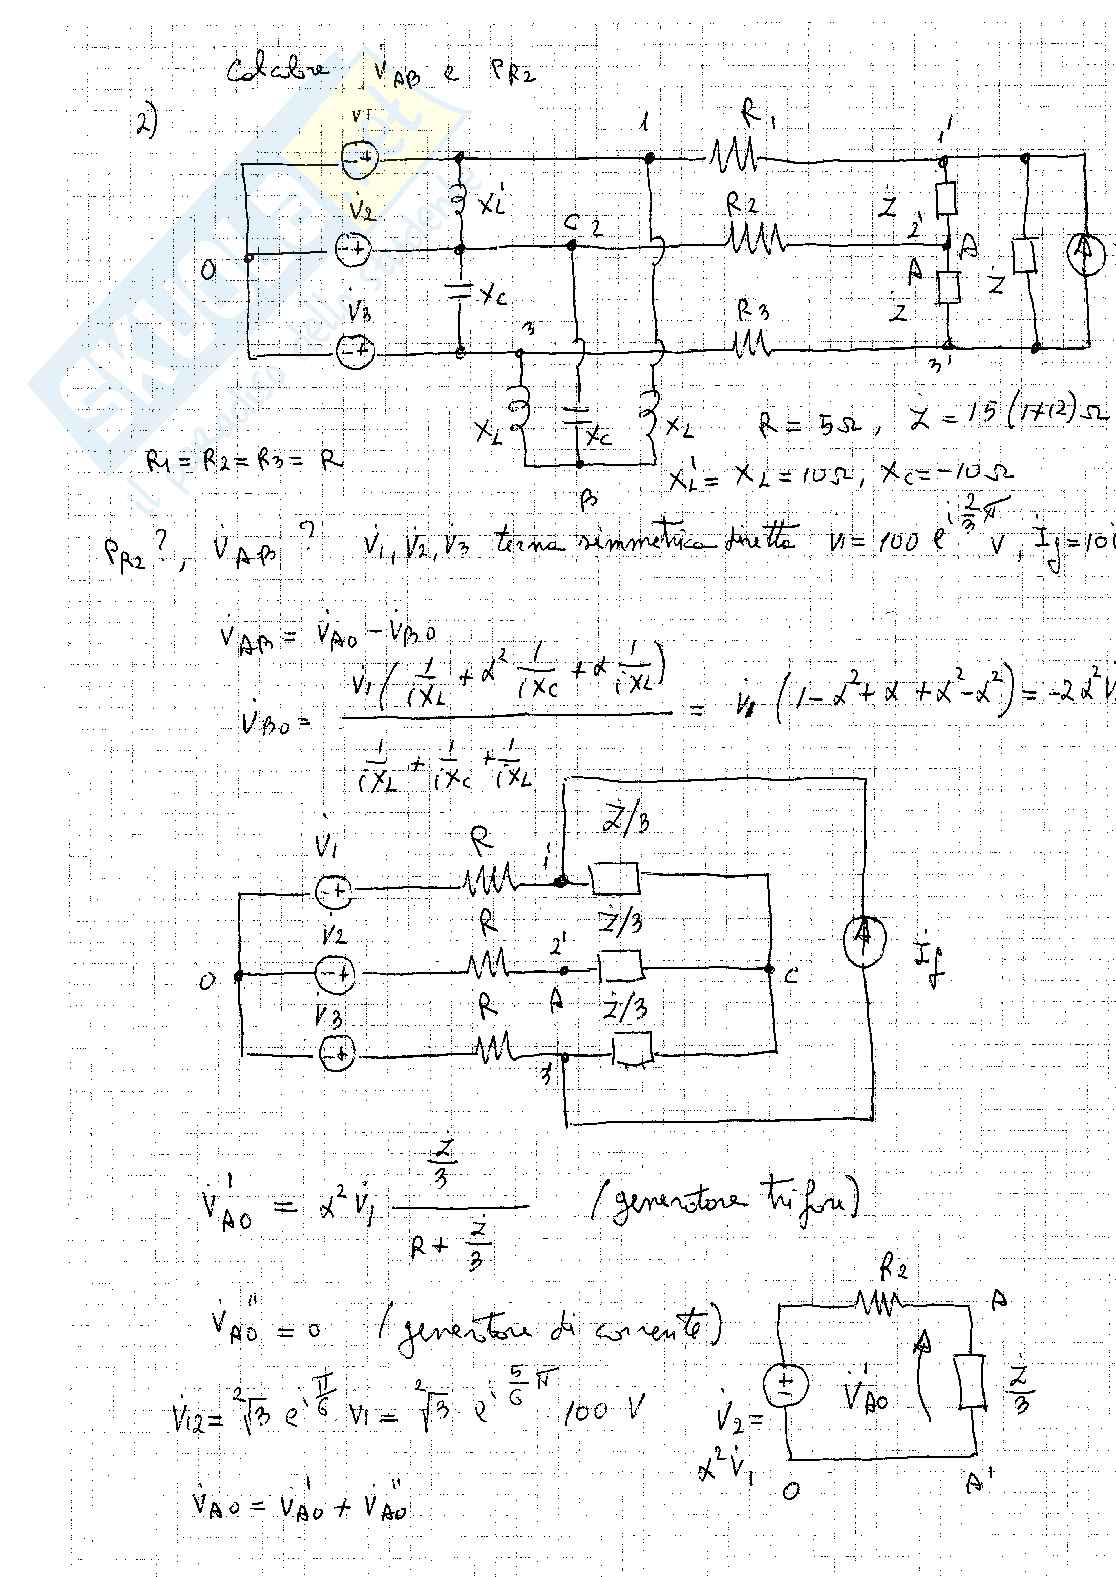 Calcolare V̇AB e PR2
2)
V1
1
R1
1'
V̇2
XL'
C 2
R2
Ż
2'
A
O
A
Ż
Ż
XC
V̇3
3
R3
3'
XL
XC
XL
R = 5Ω, Ż = 15(1+i2)Ω
R1 = R2 = R3 = R
XL' = XL = 10Ω, XC = -10Ω
B
PR2?, V̇AB? V̇1, V̇2, V̇3 terna simmetrica diretta V̇1 = 100 e^{i 2/3 π} V, İg = 10
V̇AB = V̇A0 - V̇B0
V̇B0 = V̇1 (1/iXL + α² 1/iXC + α 1/iXL) / (1/iXL + 1/iXC + 1/iXL) = V̇1 (1 - α² + α + α² - α²) = -2α² V̇
V̇1
R
1'
Ż/3
V̇2
R
2'
Ż/3
O
A
C
İg
V̇3
R
Ż/3
3'
V̇'A0 = α² V̇1 (Ż/3) / (R + Ż/3) (generatore trifase)
R2
A
V̇''A0 = 0 (generatore di corrente)
V̇12 = ²√3 e^{i π/6} V1 = ²√3 e^{i 5/6 π} 100 V
V̇2 = α² V̇1
V̇'A0
Ż/3
O
A'
V̇A0 = V̇'A0 + V̇''A0